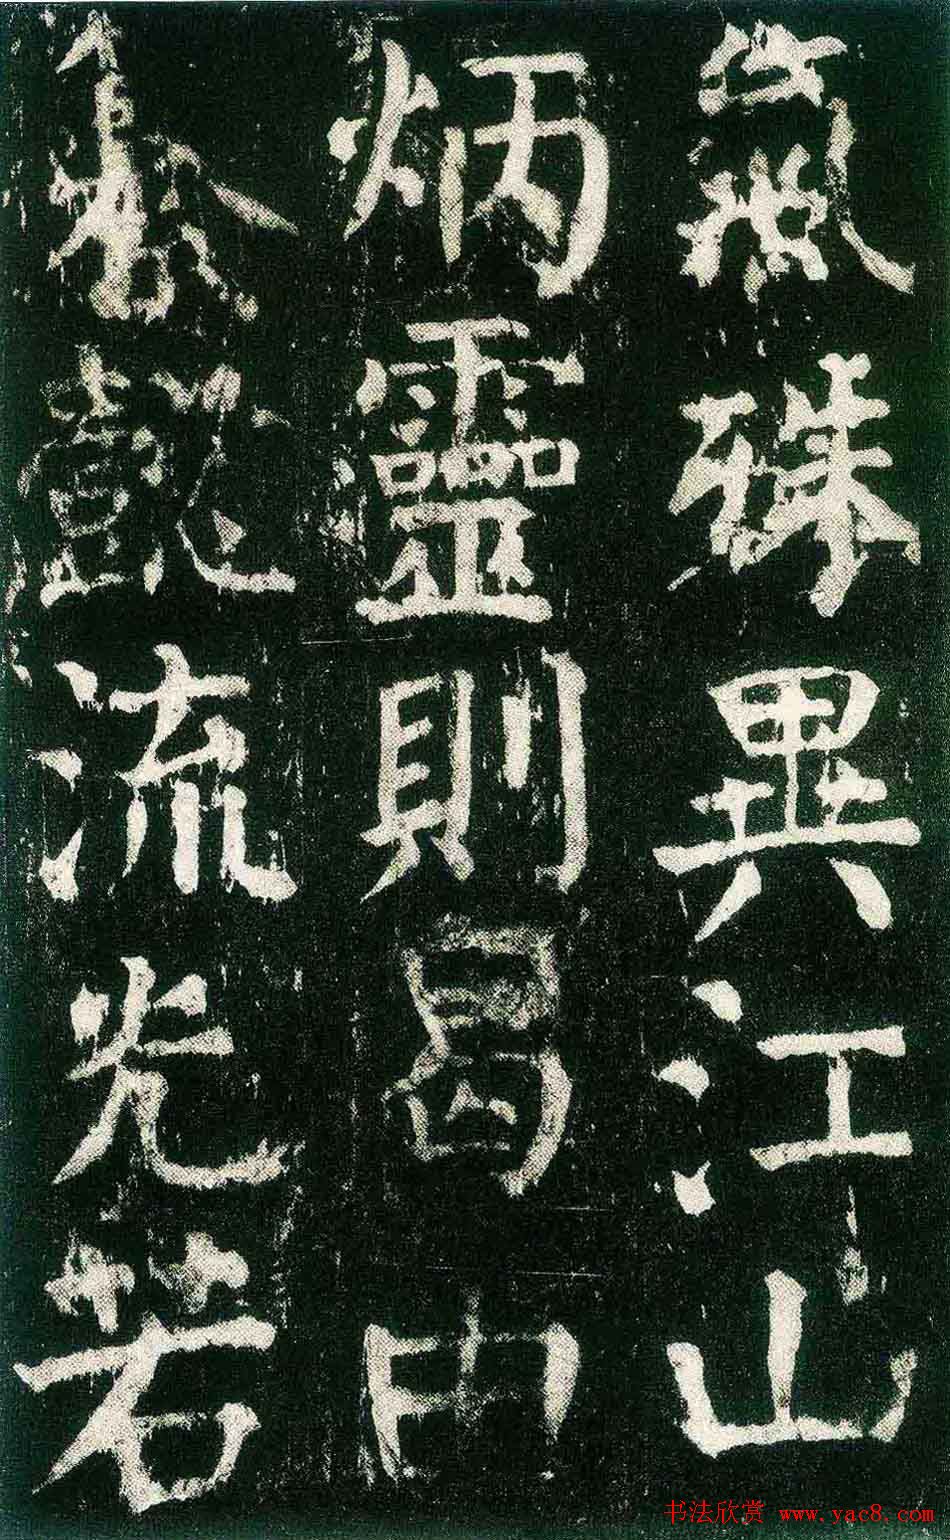 氣殊異江山
炳靈則曷由
懿流光若
书法欣赏 www.yac8.com